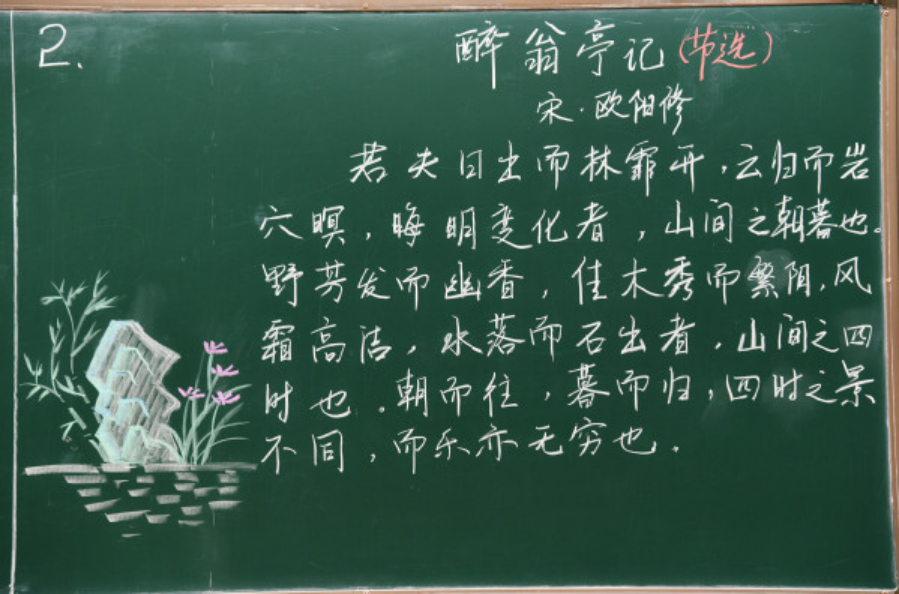 2.
醉翁亭记(节选)
宋·欧阳修
若夫日出而林霏开,云归而岩
穴暝,晦明变化者,山间之朝暮也。
野芳发而幽香,佳木秀而繁阴,风
霜高洁,水落而石出者,山间之四
时也。朝而往,暮而归,四时之景
不同,而乐亦无穷也。